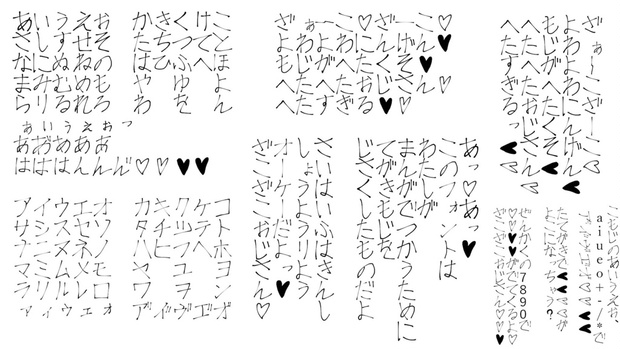 あいうえお かきくけこ
さしすせそ たちつてと
なにぬねの はひふへほ
まみむめも や ゆ よ
らりるれろ わ を ん
ぁぃぅぇぉっ
はははんんん゛♡♡♥♥
アイウエオ カキクケコ
サシスセソ タチツテト
ナニヌネノ ハヒフヘホ
マミムメモ ヤ ユ ヨ
ラリルレロ ワ ヲ ン
ァィゥェォ
ざぁ～こ♡ざ～こ♡
よわよわにんげん♥
もじがへたくそ♥
へたへた
へたすぎる♥♡
ざぁ～こざ～こ♡
よわよわにんげん♥
もじがへたくそ♥
へたへた
へたすぎるっ♥♡
あっ♡あっ♥
このフォントは
わたしが
まんがでつかうために
てがきもじを
じさくしたものだよ
さいはいふはきんし
しょうようりよう
オーケーだよっ♥
ざこざこおじさん♡
こもじのあいうえお、
aiueo+-/*で
よこになっちゃう？
ぜんかくの7890で
♡♥♥♡がでてくるよ♡
ざこざこおじさん♡♥